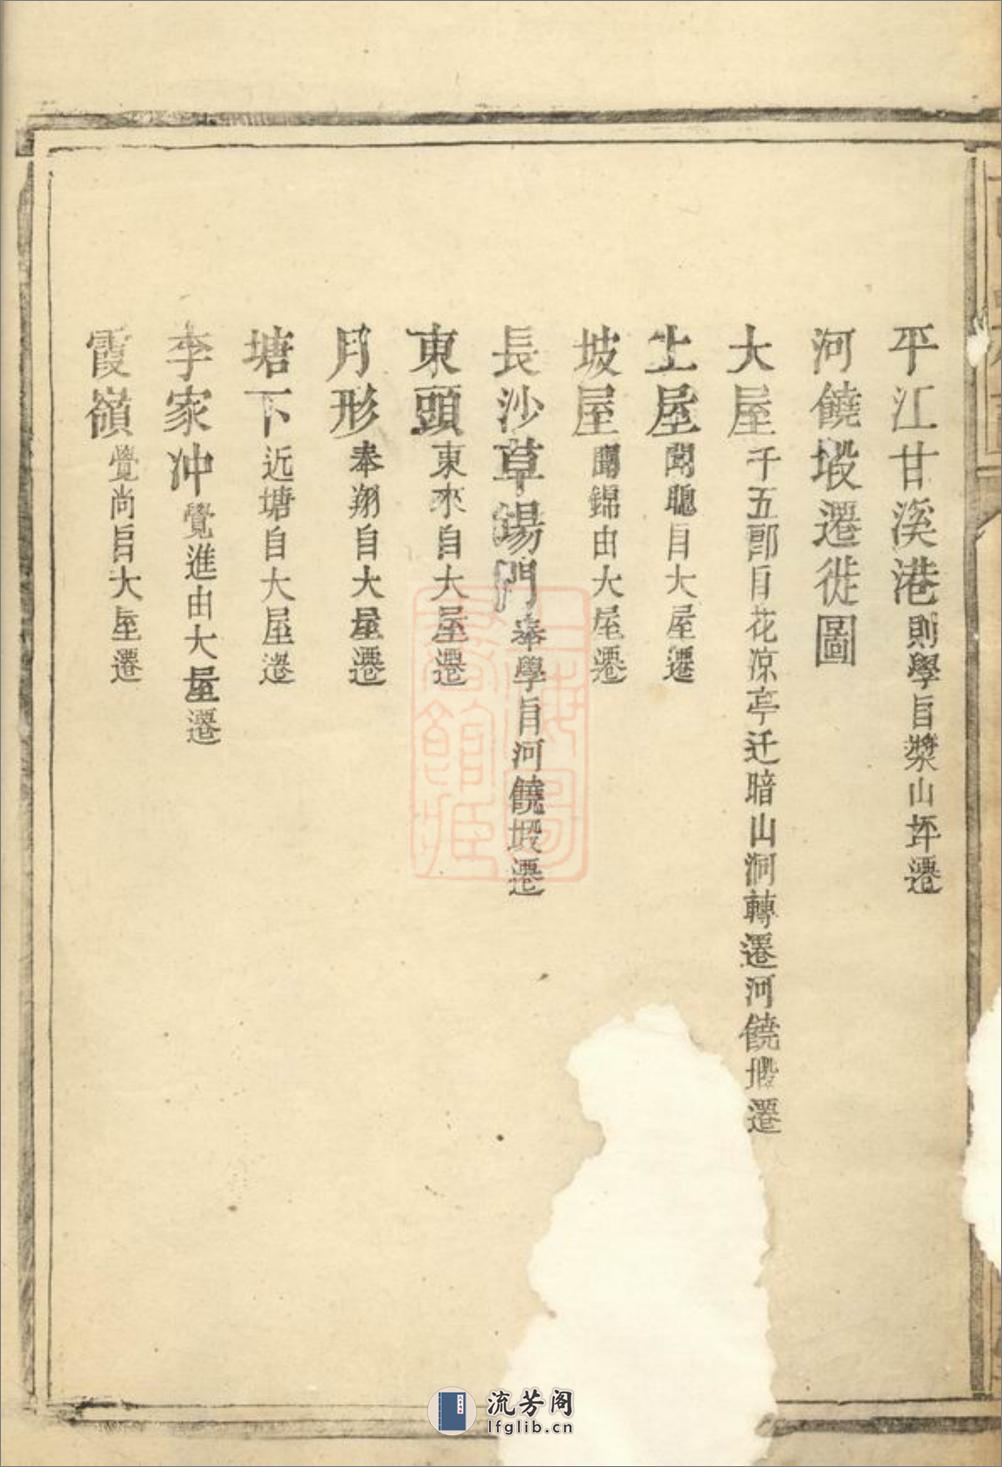 平江甘溪港則學自槳山坪遷
河饒塅遷徙圖
大屋千五郎自花凉亭迁暗山洞轉遷河饒塅遷
上屋聞聰自大屋遷
坡屋聞錦由大屋遷
長沙草場門奉學自河饒塅遷
東頭東來自大屋遷
月形奉翔自大屋遷
塘下近塘自大屋遷
李家冲覺進由大屋遷
霞嶺覺尚自大屋遷
流芳阁
lfglib.cn